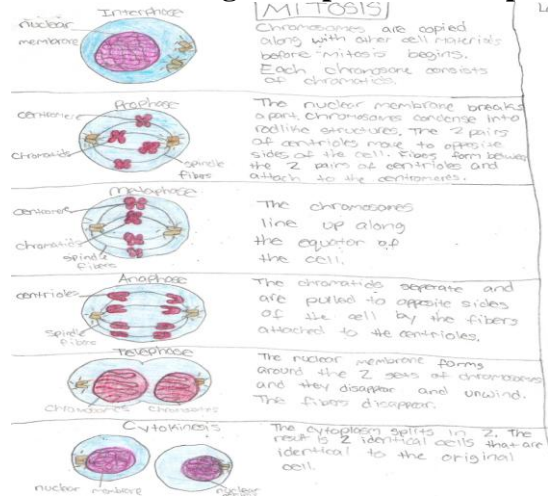 Interphase
MITOSIS
nuclear
membrane
Chromosomes are copied
along with other cell materials
before mitosis begins.
Each chromosome consists
of chromatids.
Prophase
centromere
chromatids
spindle
fibers
The nuclear membrane breaks
apart. Chromosomes condense into
rodlike structures. The 2 pairs
of centrioles move to opposite
sides of the cell. Fibers form between
the 2 pairs of centrioles and
attach to the centromeres.
Metaphase
centromere
chromatids
spindle
fibers
The chromosomes
line up along
the equator of
the cell.
Anaphase
centrioles
spindle
fibers
The chromatids seperate and
are pulled to opposite sides
of the cell by the fibers
attached to the centrioles.
Telophase
The nuclear membrane forms
around the 2 sets of chromosomes
and they disappear and unwind.
The fibers disappear.
Cytokinesis
nuclear membrane
nuclear
The cytoplasm splits in 2. The
result is 2 identical cells that are
identical to the original
cell.